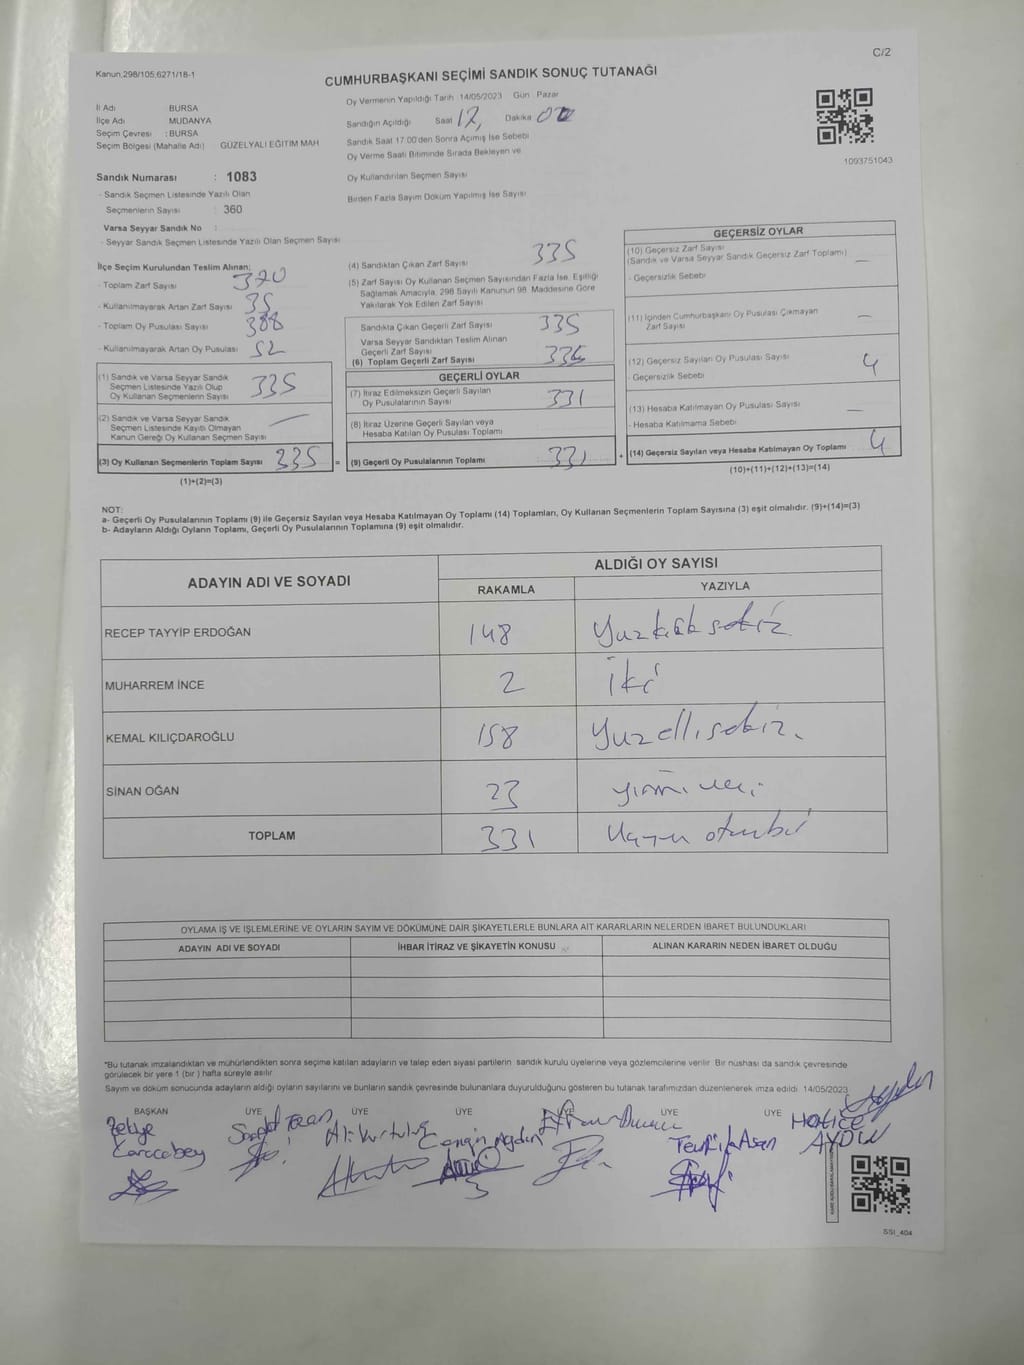 C/2
Kanun,298/105,6271/18-1
CUMHURBAŞKANI SEÇİMİ SANDIK SONUÇ TUTANAĞI
İl Adı BURSA
İlçe Adı MUDANYA
Seçim Çevresi : BURSA
Seçim Bölgesi (Mahalle Adı) GÜZELYALI EĞİTİM MAH
Sandık Numarası : 1083
- Sandık Seçmen Listesinde Yazılı Olan
Seçmenlerin Sayısı : 360
Varsa Seyyar Sandık No :
- Seyyar Sandık Seçmen Listesinde Yazılı Olan Seçmen Sayısı
Oy Vermenin Yapıldığı Tarih :14/05/2023 Gün : Pazar
Sandığın Açıldığı Saat 17, Dakika
Sandık Saat 17:00'den Sonra Açımış İse Sebebi
Oy Verme Saati Bitiminde Sırada Bekleyen ve
Oy Kullandırılan Seçmen Sayısı
Birden Fazla Sayım Döküm Yapılmış İse Sayısı
1093751043
İlçe Seçim Kurulundan Teslim Alınan;
- Toplam Zarf Sayısı 370
- Kullanılmayarak Artan Zarf Sayısı 35
- Toplam Oy Pusulası Sayısı 388
- Kullanılmayarak Artan Oy Pusulası 52
(1) Sandık ve Varsa Seyyar Sandık
Seçmen Listesinde Yazılı Olup
Oy Kullanan Seçmenlerin Sayısı 335
(2) Sandık ve Varsa Seyyar Sandık
Seçmen Listesinde Kayıtlı Olmayan
Kanun Gereği Oy Kullanan Seçmen Sayısı —
(3) Oy Kullanan Seçmenlerin Toplam Sayısı 335 =
(1)+(2)=(3)
(4) Sandıktan Çıkan Zarf Sayısı 335
(5) Zarf Sayısı Oy Kullanan Seçmen Sayısından Fazla İse, Eşitliği
Sağlamak Amacıyla, 298 Sayılı Kanunun 98. Maddesine Göre
Yakılarak Yok Edilen Zarf Sayısı
Sandıkta Çıkan Geçerli Zarf Sayısı 335
Varsa Seyyar Sandıktan Teslim Alınan
Geçerli Zarf Sayısı
(6) Toplam Geçerli Zarf Sayısı
GEÇERLİ OYLAR
(7) İtiraz Edilmeksizin Geçerli Sayılan
Oy Pusulalarının Sayısı 331
(8) İtiraz Üzerine Geçerli Sayılan veya
Hesaba Katılan Oy Pusulası Toplamı
(9) Geçerli Oy Pusulalarının Toplamı 331 +
GEÇERSİZ OYLAR
(10) Geçersiz Zarf Sayısı
(Sandık ve Varsa Seyyar Sandık Geçersiz Zarf Toplamı) —
- Geçersizlik Sebebi
(11) İçinden Cumhurbaşkanı Oy Pusulası Çıkmayan
Zarf Sayısı —
(12) Geçersiz Sayılan Oy Pusulası Sayısı 4
- Geçersizlik Sebebi
(13) Hesaba Katılmayan Oy Pusulası Sayısı —
- Hesaba Katılmama Sebebi
(14) Geçersiz Sayılan veya Hesaba Katılmayan Oy Toplamı 4
(10)+(11)+(12)+(13)=(14)
NOT:
a- Geçerli Oy Pusulalarının Toplamı (9) ile Geçersiz Sayılan veya Hesaba Katılmayan Oy Toplamı (14) Toplamları, Oy Kullanan Seçmenlerin Toplam Sayısına (3) eşit olmalıdır. (9)+(14)=(3)
b- Adayların Aldığı Oyların Toplamı, Geçerli Oy Pusulalarının Toplamına (9) eşit olmalıdır.
ADAYIN ADI VE SOYADI
ALDIĞI OY SAYISI
RAKAMLA YAZIYLA
RECEP TAYYİP ERDOĞAN 148 Yüzkırksekiz
MUHARREM İNCE 2 İki
KEMAL KILIÇDAROĞLU 158 Yuzellisekiz.
SİNAN OĞAN 23 yirmi üç
TOPLAM 331 Üçyüz otuzbir
OYLAMA İŞ VE İŞLEMLERİNE VE OYLARIN SAYIM VE DÖKÜMÜNE DAİR ŞİKAYETLERLE BUNLARA AİT KARARLARIN NELERDEN İBARET BULUNDUKLARI
ADAYIN ADI VE SOYADI İHBAR İTİRAZ VE ŞİKAYETİN KONUSU ALINAN KARARIN NEDEN İBARET OLDUĞU
*Bu tutanak imzalandıktan ve mühürlendikten sonra seçime katılan adayların ve talep eden siyasi partilerin sandık kurulu üyelerine veya gözlemcilerine verilir. Bir nüshası da sandık çevresinde
görülecek bir yere 1 (bir ) hafta süreyle asılır.
Sayım ve döküm sonucunda adayların aldığı oyların sayılarını ve bunların sandık çevresinde bulunanlara duyurulduğunu gösteren bu tutanak tarafımızdan düzenlenerek imza edildi. 14/05/2023
BAŞKAN ÜYE ÜYE ÜYE ÜYE ÜYE ÜYE
Zekiye Karacabey
Ali Kurtuluş
Cengin Aydın
Tevfik Asan
HATİCE AYDIN
SSI_404